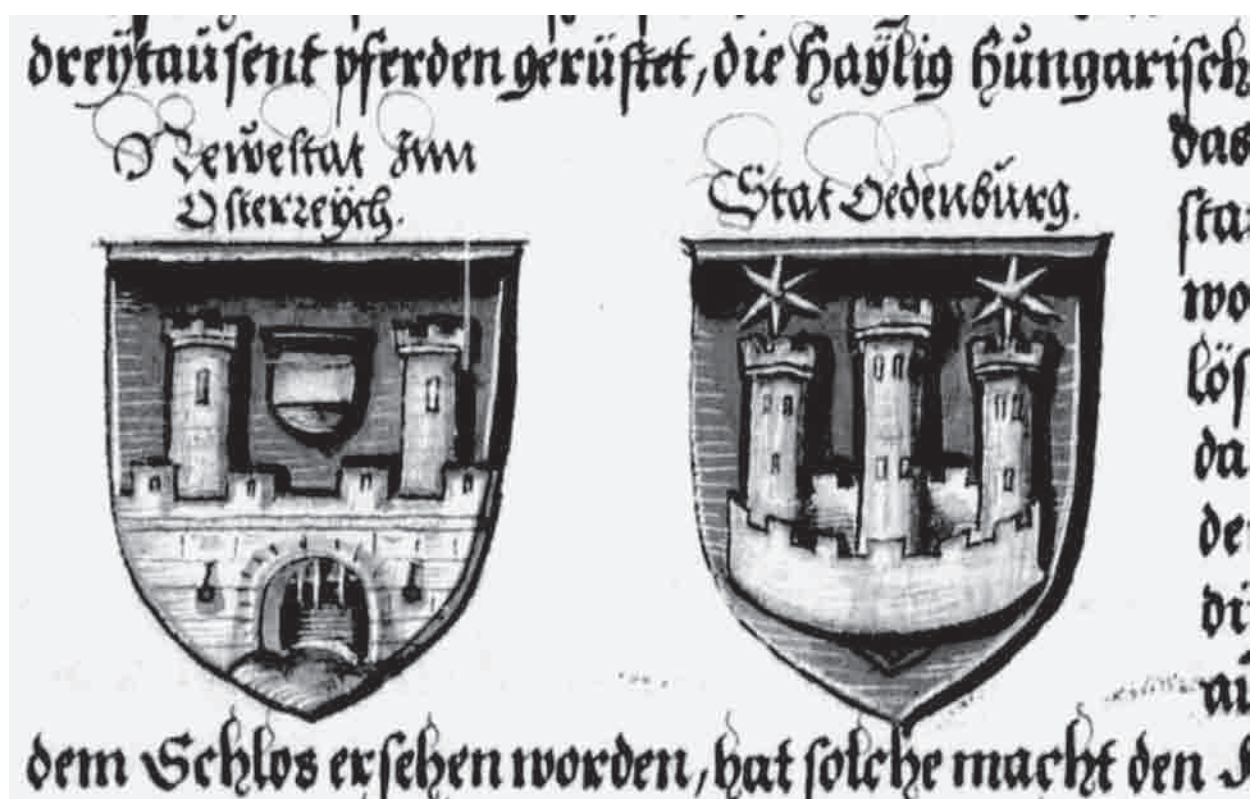 dreÿtaüsent pferden gerüstet, die Haÿlig Hŭngarisch
Newestat Inn
Osterreÿch.
Stat Oedenbŭrg.
das
sta
wo
lös
da
de
di
aŭ
dem Schlos ersehen worden, hat solche macht den